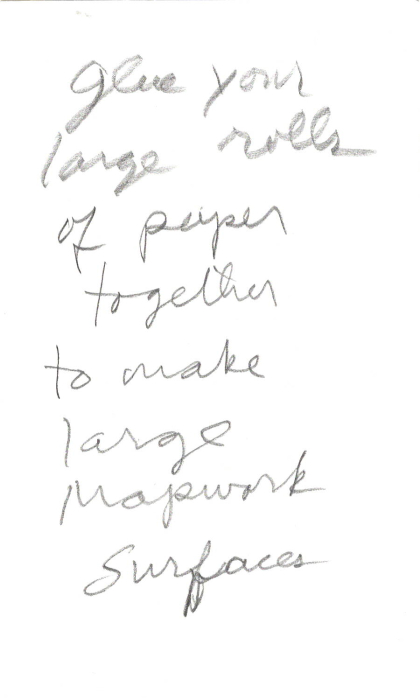 glue your
large rolls
of paper
together
to make
large
Mapwork
Surfaces